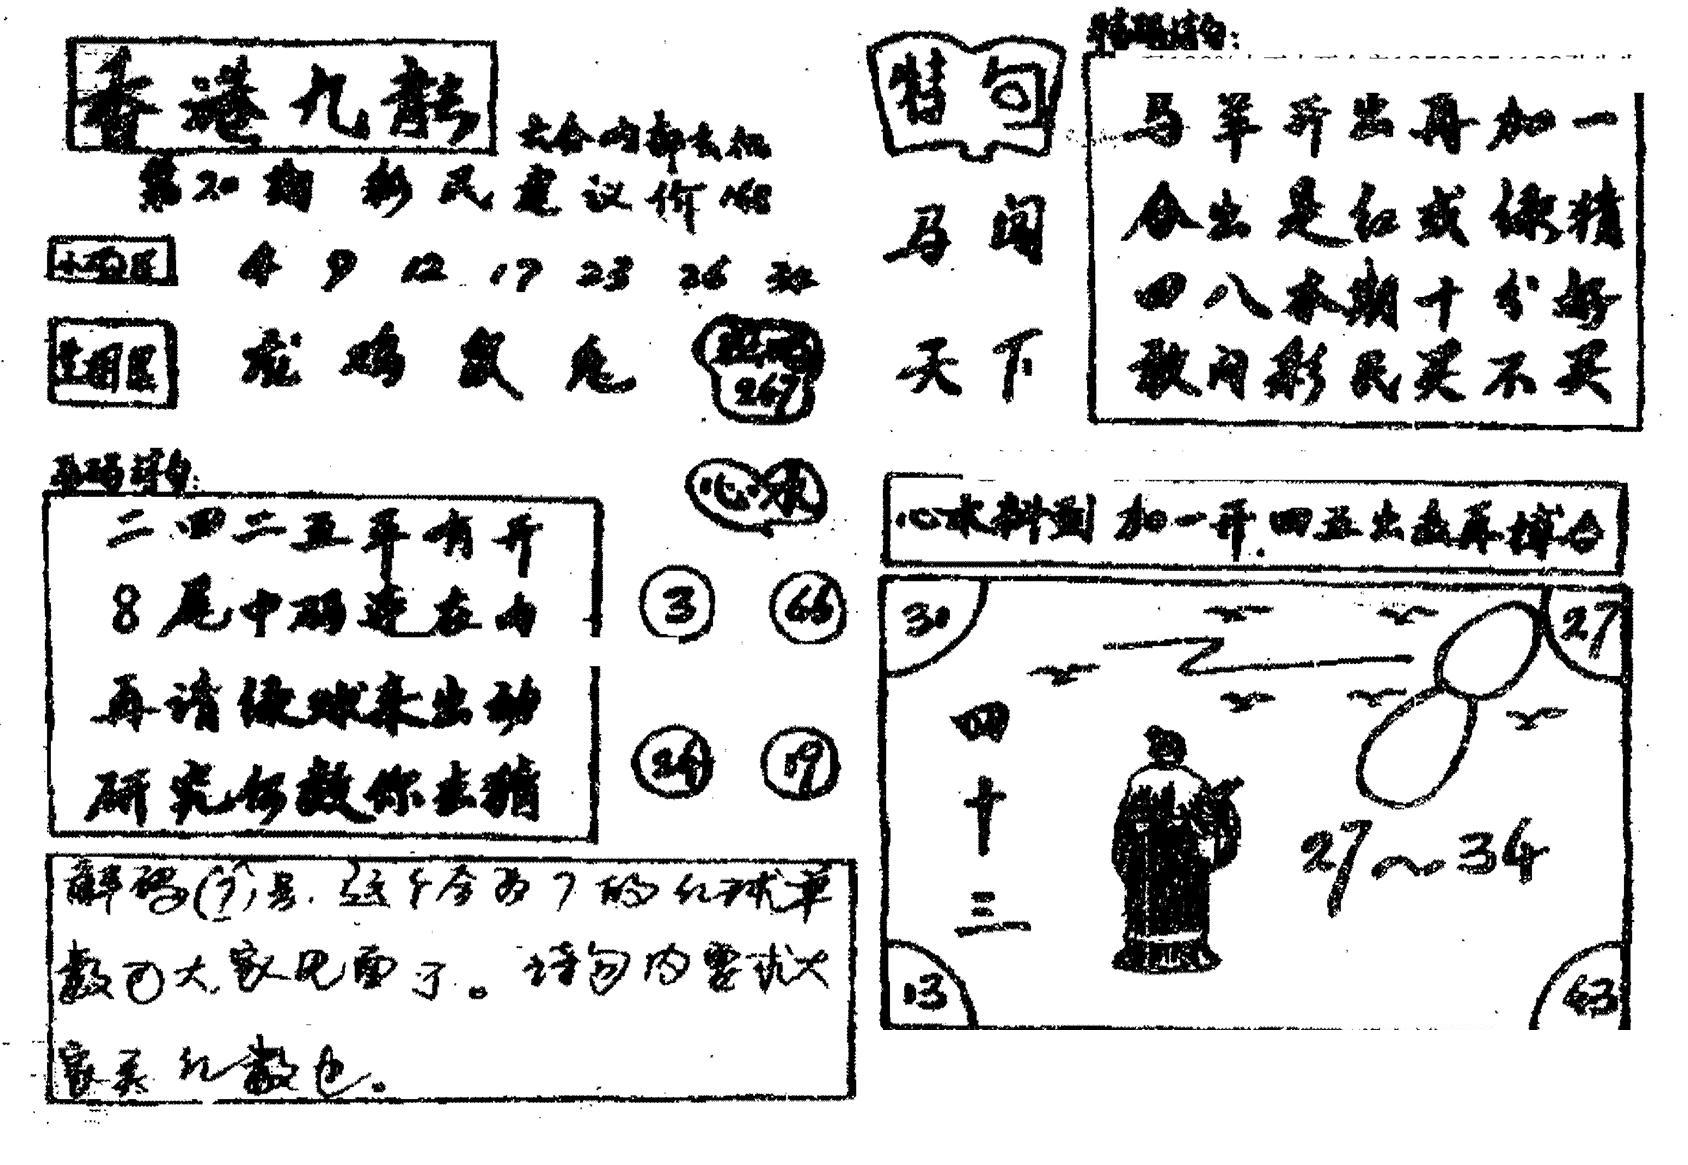 香港九龍
六合内部玄机
第20期 彩民建议价168
4 9 12 17 23 26 33
龙 鸡 鼠 兔
267
平码诗句:
二四二五平有开
8尾中码连在内
再请绿球来出动
研究何数你去猜
心水
3 66
24 19
解码(7)号.这个合为7的红球单
数可大家见面了。诗句内要求大
家买红数也。
特句
马闯
天下
特码诗句:
马羊开出再加一
合出是红或绿精
四八本期十分好
敢问彩民买不买
心水料到 加一开.四五出幺再博合
30
27
四十三
27～34
13
63